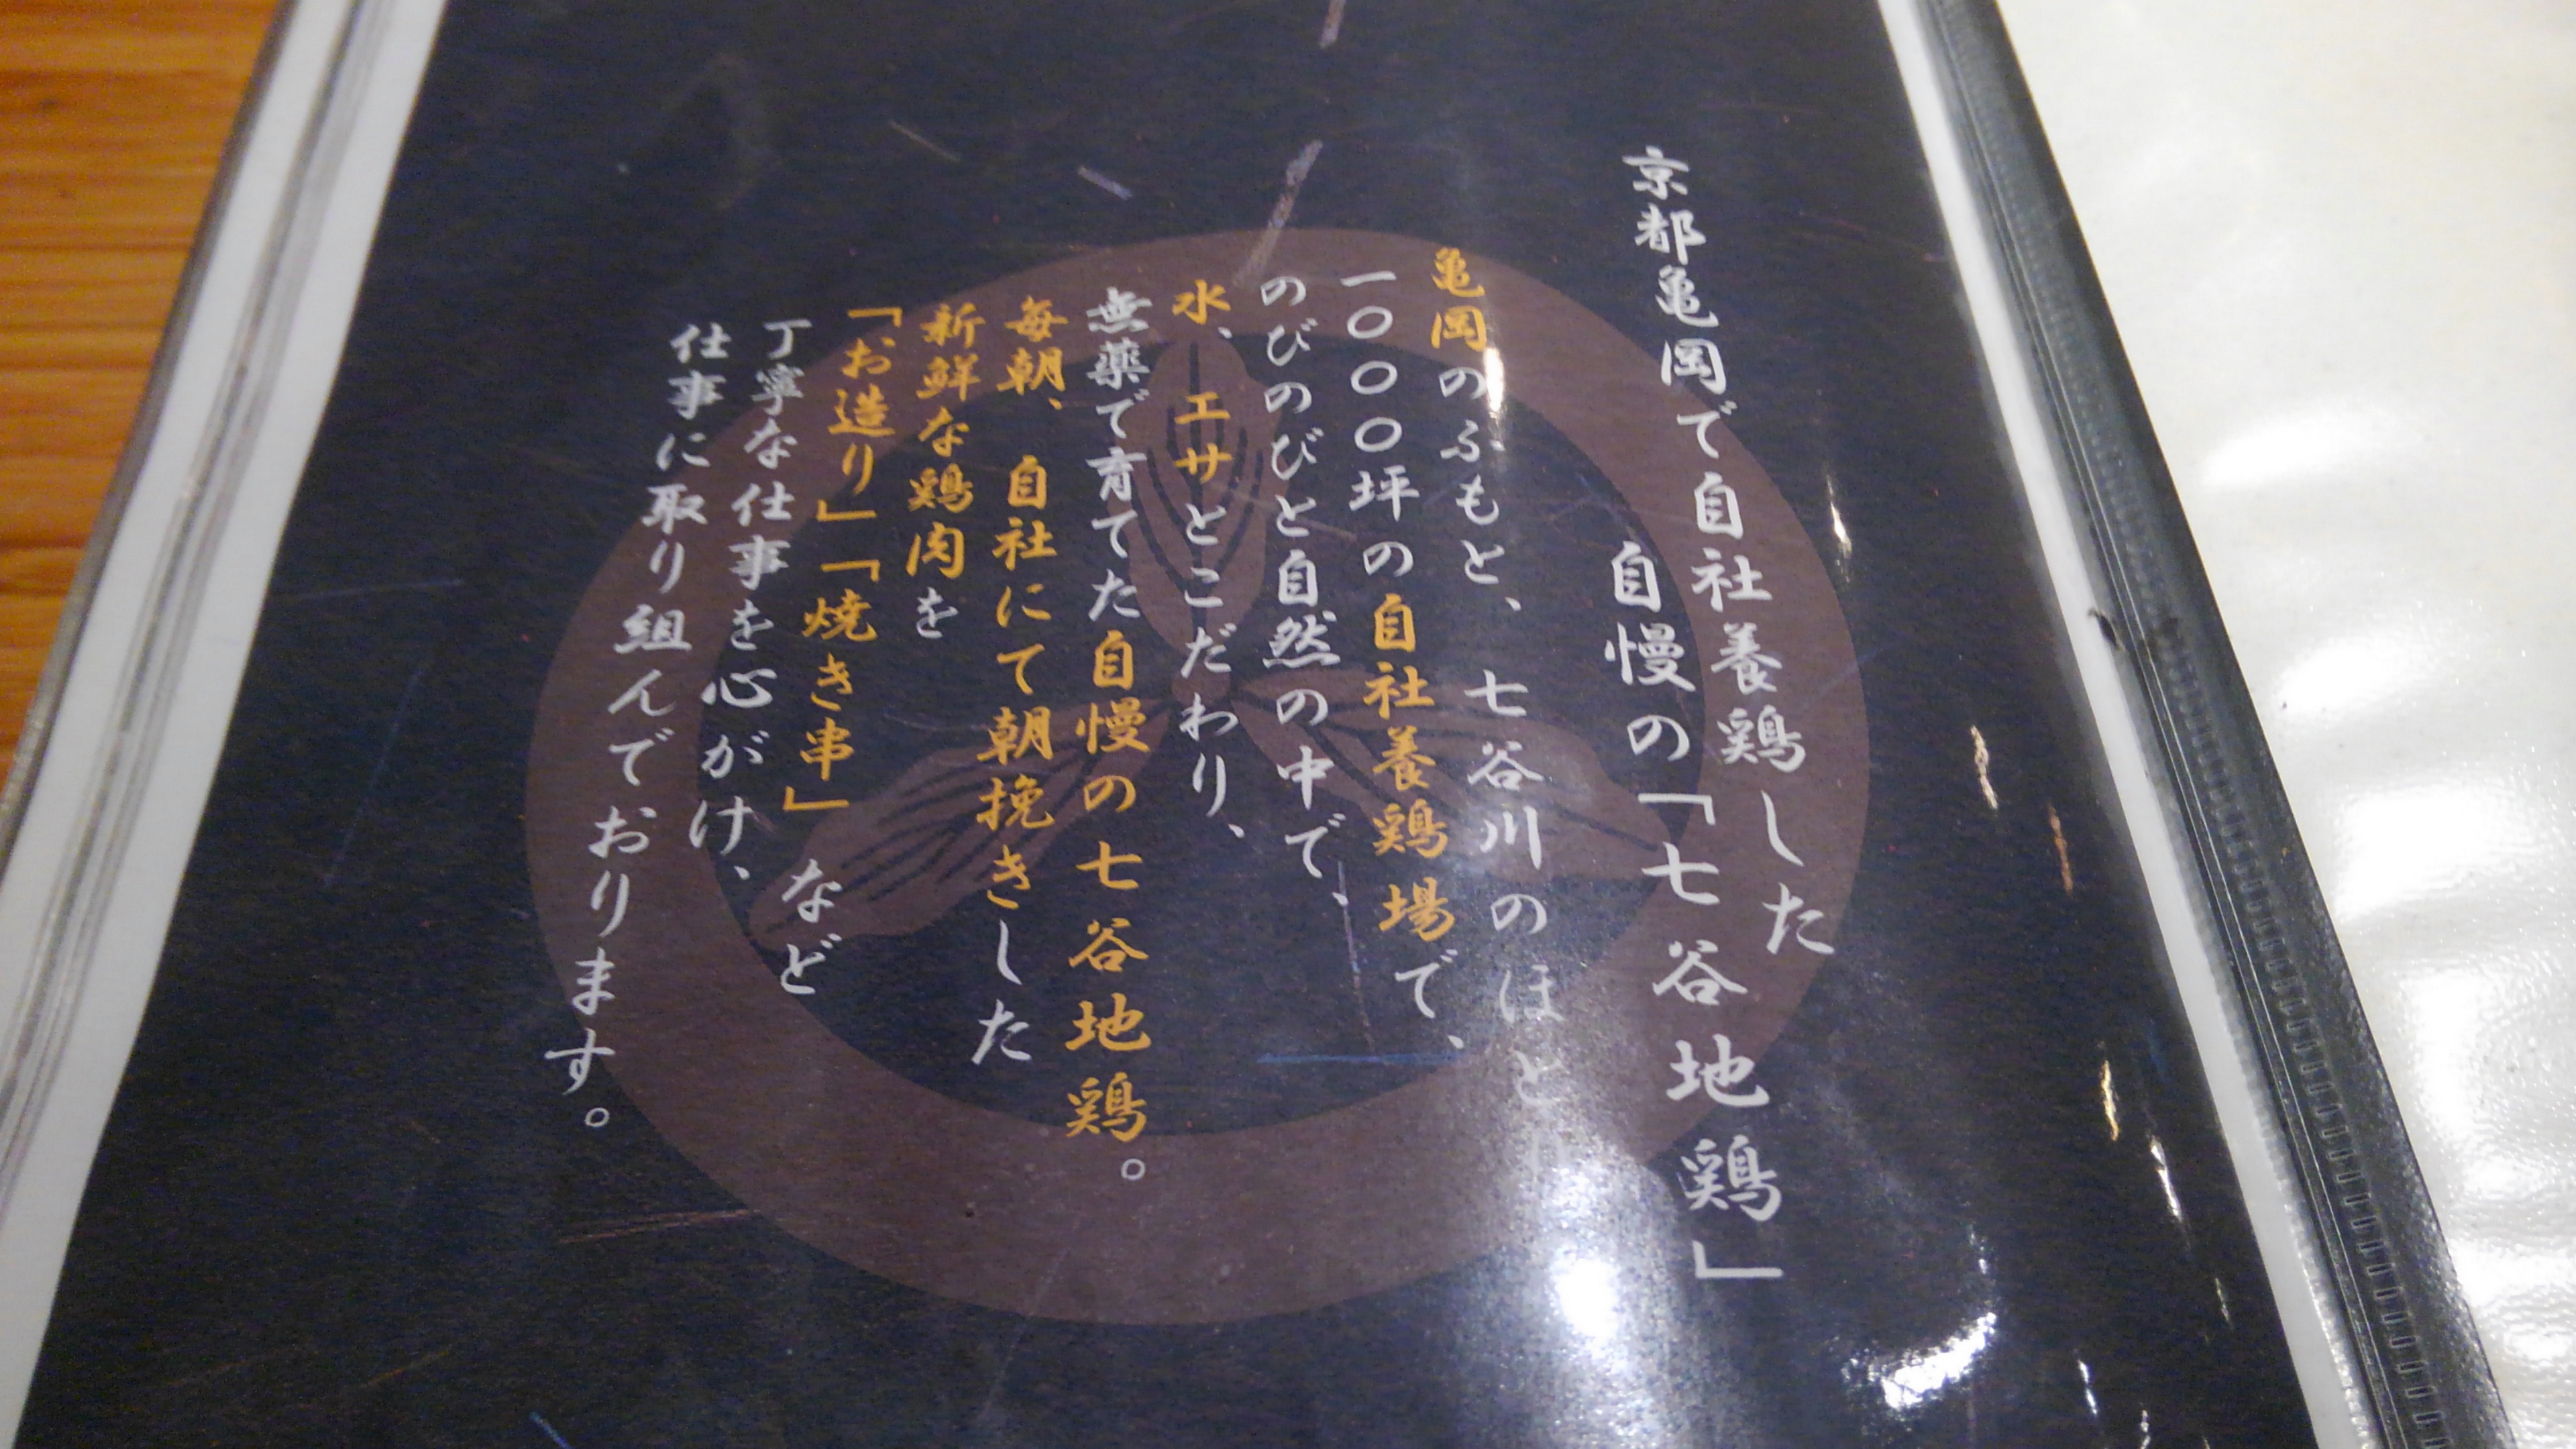 京都亀岡で自社養鶏した
自慢の「七谷地鶏」
亀岡のふもと、七谷川のほとり
一〇〇〇〇坪の自社養鶏場で、
のびのびと自然の中で、
水、エサとこだわり、
無薬で育てた自慢の七谷地鶏。
毎朝、自社にて朝挽きした
新鮮な鶏肉を
「お造り」「焼き串」など
丁寧な仕事を心がけ、
仕事に取り組んでおります。